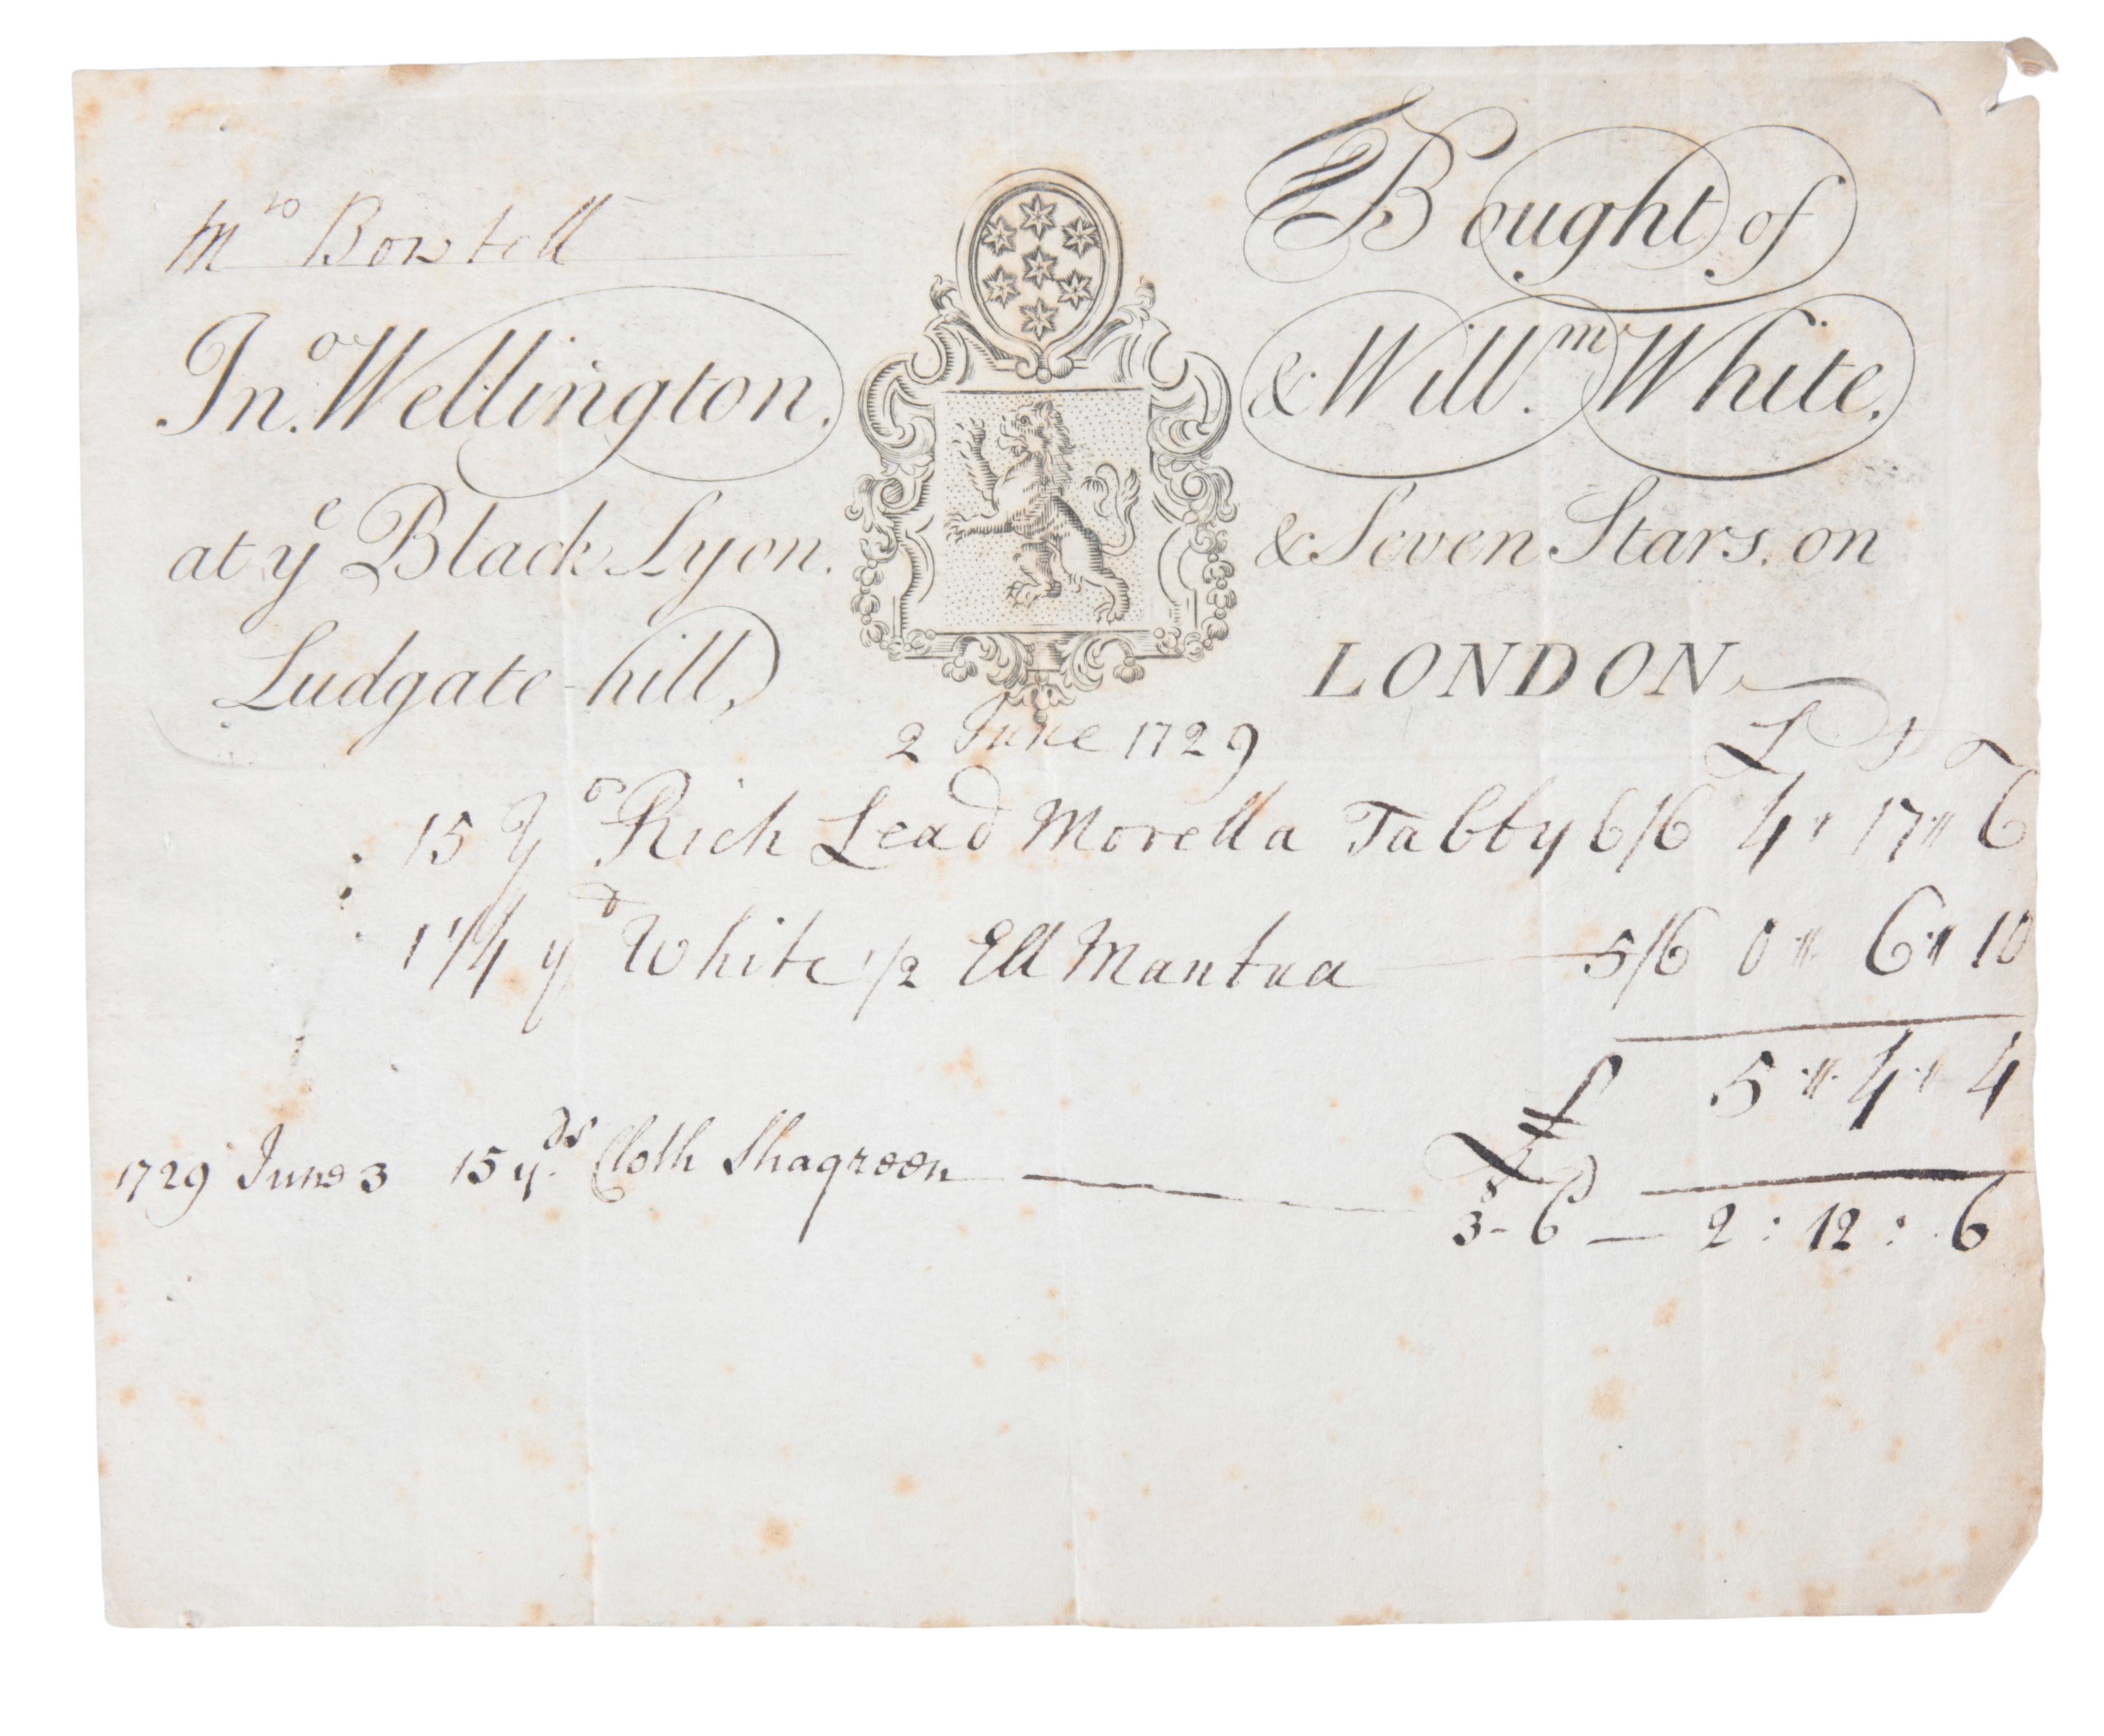 Mrs Bowtell Bought of
Jno. Wellington. & Willm. White.
at ye Black Lyon. & Seven Stars. on
Ludgate-hill, LONDON
2 June 1729 £ s d
15 yds Rich Lead Morella Tabby 6/6 4 " 17 " 6
1 1/4 yd White 1/2 Ell Mantua 5/6 0 " 6 " 10
£ 5 " 4 " 4
1729 June 3 15 yds. Cloth Shagreen s d
3 - 6 — 2 : 12 : 6